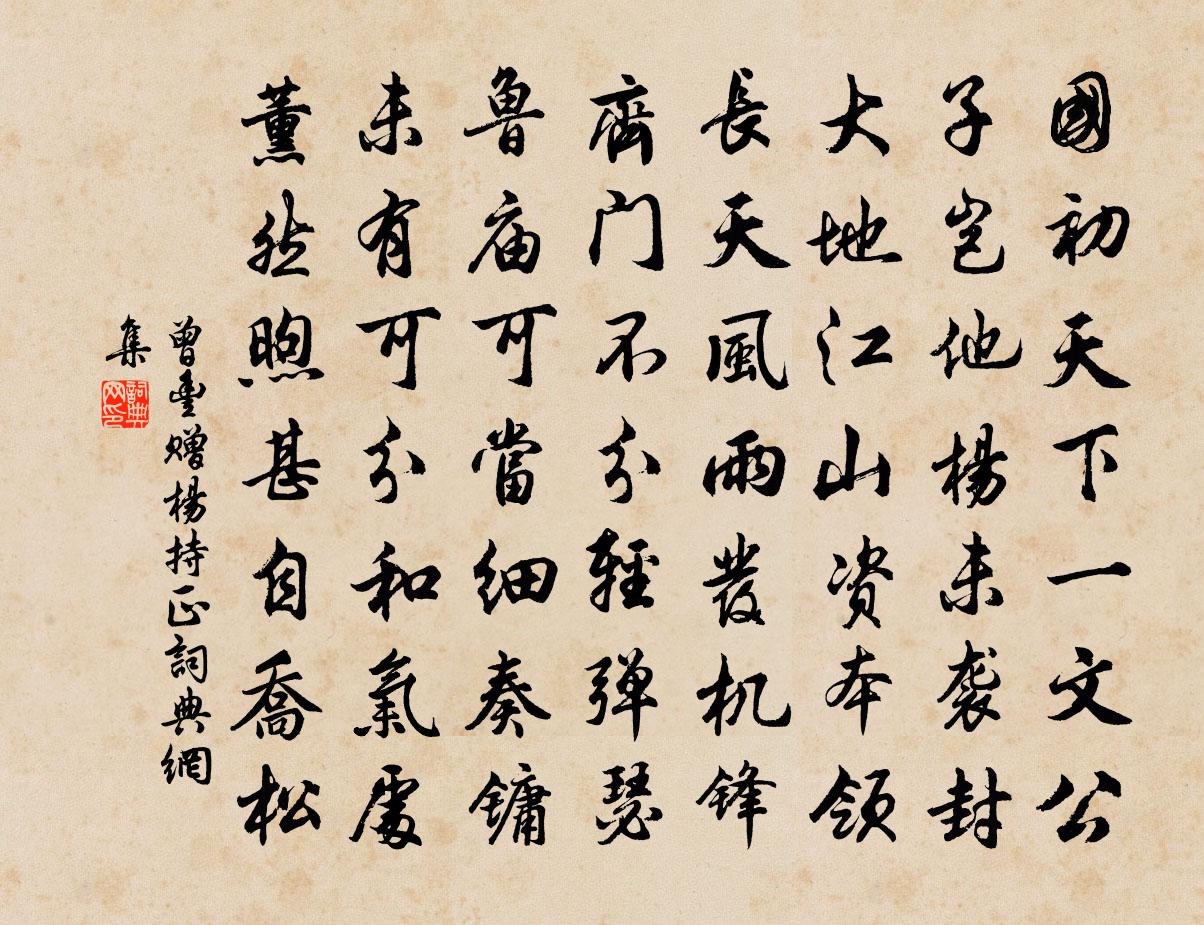 國初天下一文公
子豈他楊未袭封
大地江山资本領
長天風雨發机锋
齊门不分輕弹瑟
鲁庙可當细奏镛
未有可分和氣處
薰然煦甚自喬松
曾豊赠楊持正詞典網
集
詞典
网印